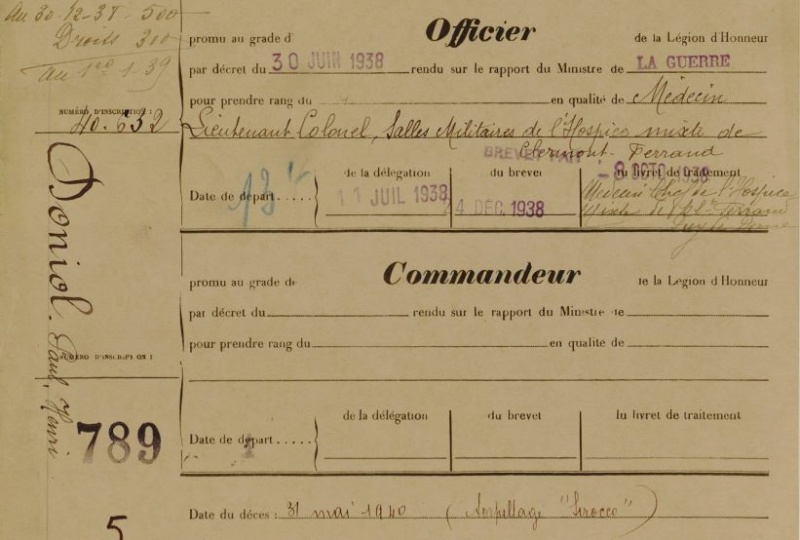 Au 30-12-38 - 500
Droits 300
au 1er-1-39
Officier
promu au grade d de la Légion d'Honneur
par décret du 30 JUIN 1938 rendu sur le rapport du Ministre de LA GUERRE
pour prendre rang du en qualité de Médecin
NUMÉRO D'INSCRIPTION :
40.632
Lieutenant Colonel, Salles Militaires de l'Hospice mixte de
Clermont-Ferrand
BREVET
de la délégation du brevet du livret de traitement
- 8 OCTO 1938
Date de départ..... 13 11 JUIL 1938 24 DEC. 1938
Médecin Chef de l'Hospice
Mixte de Ferrand
Doniol. Paul, Henri
Commandeur
promu au grade de de la Légion d'Honneur
par décret du rendu sur le rapport du Ministre de
pour prendre rang du en qualité de
NUMÉRO D'INSCRIPTION :
789
de la délégation du brevet du livret de traitement
Date de départ.....
5
Date du décès : 31 mai 1940 (Torpillage "Sirocco")